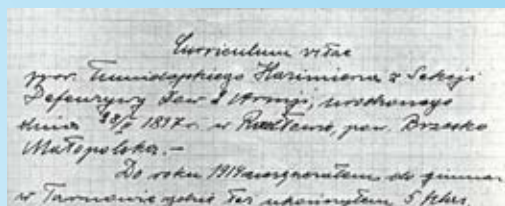 Curriculum vitae
ppor. Kazimiera z Sekcji
Defenzywy Armji, urodzonego
dnia 1897 r. w Radłowie, pow. Brzesko
Małopolska. –
Do roku 1914 uczęszczałem do
w Tarnowie gdzie też ukończyłem 5